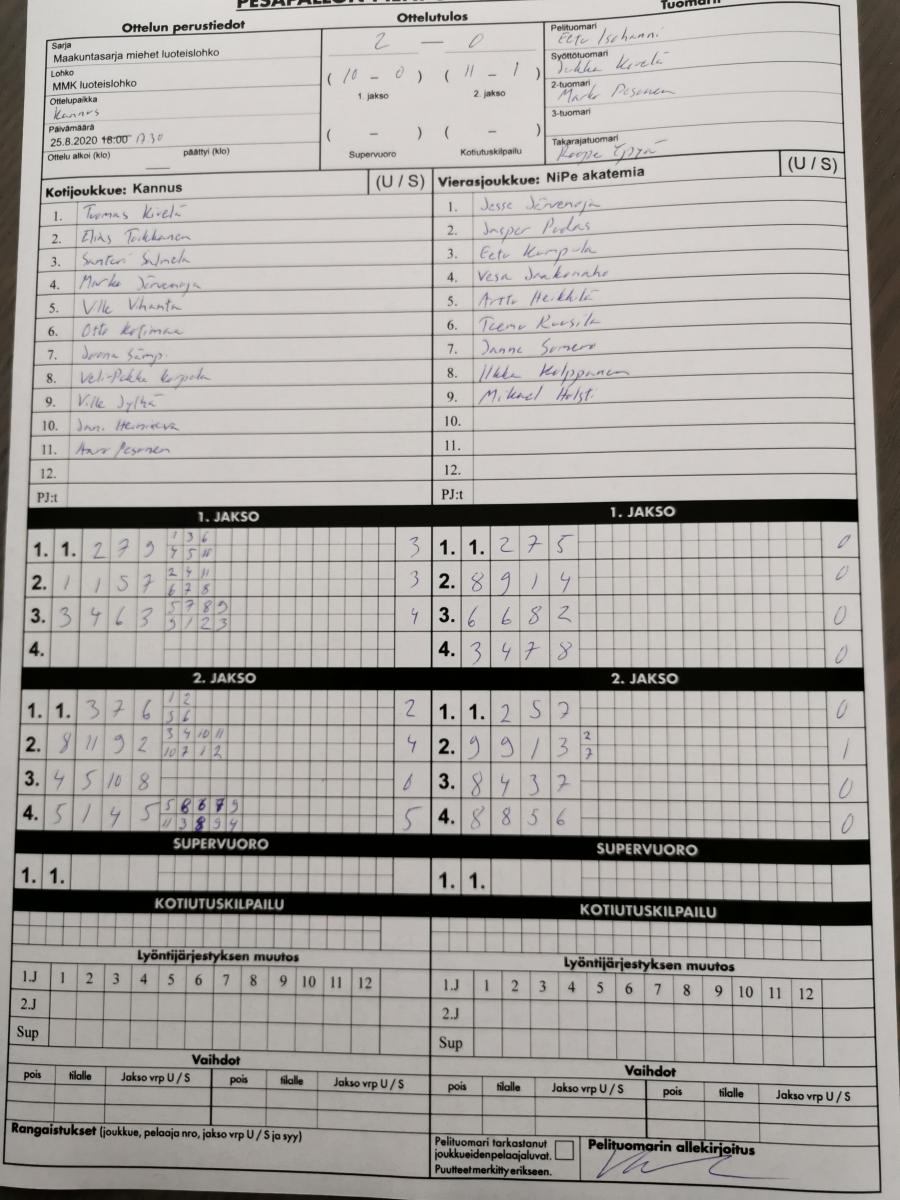 Ottelun perustiedot
Ottelutulos
Sarja
Maakuntasarja miehet luoteislohko
Lohko
MMK luoteislohko
Ottelupaikka
Kannus
Päivämäärä
25.8.2020 18:00 17.30
Ottelu alkoi (klo) päättyi (klo)
2 — 0
( 10 – 0 ) ( 11 – 1 )
1. jakso 2. jakso
( – ) ( – )
Supervuoro Kotiutuskilpailu
Pelituomari
Eetu Isohanni
Syöttötuomari
Jukka Kivelä
2-tuomari
Marko Pesonen
3-tuomari
Takarajatuomari
Kotijoukkue: Kannus (U / S)
1. Tuomas Kivelä
2. Elias Toikkanen
3. Santeri Salmela
4. Marko Järvenoja
5. Ville Vihanta
6. Otto Kotimaa
7. Joona Sämp.
8. Veli-Pekka Korpela
9. Ville Jylhä
10. Jani
11. Pesonen
12.
PJ:t
Vierasjoukkue: NiPe akatemia (U / S)
1. Jesse Järvenoja
2. Jasper Pudas
3. Eetu Kumpula
4. Vesa Jaakonaho
5. Artto Heikkilä
6. Teemu Kuusila
7. Janne Somero
8. Ilkka Kolppanen
9. Mikael Holsti
10.
11.
12.
PJ:t
1. JAKSO
1. 1. 2 7 9 1 3 6 3
4 5 11
2. 1 1 5 7 2 4 11 3
6 7 8
3. 3 4 6 3 5 7 8 9 4
9 1 2 3
4.
1. JAKSO
1. 1. 2 7 5 0
2. 8 9 1 4 0
3. 6 6 8 2 0
4. 3 4 7 8 0
2. JAKSO
1. 1. 3 7 6 1 2 2
5 6
2. 8 11 9 2 3 4 10 11 4
10 7 1 2
3. 4 5 10 8 0
4. 5 1 4 5 5 8 6 7 9 5
11 3 8 9 4
2. JAKSO
1. 1. 2 5 7 0
2. 9 9 1 3 2 1
7
3. 8 4 3 7 0
4. 8 8 5 6 0
SUPERVUORO
1. 1.
SUPERVUORO
1. 1.
KOTIUTUSKILPAILU
KOTIUTUSKILPAILU
Lyöntijärjestyksen muutos
1.J 1 2 3 4 5 6 7 8 9 10 11 12
2.J
Sup
Lyöntijärjestyksen muutos
1.J 1 2 3 4 5 6 7 8 9 10 11 12
2.J
Sup
Vaihdot
pois tilalle Jakso vrp U / S pois tilalle Jakso vrp U / S
Vaihdot
pois tilalle Jakso vrp U / S pois tilalle Jakso vrp U / S
Rangaistukset (joukkue, pelaaja nro, jakso vrp U / S ja syy)
Pelituomari tarkastanut
joukkueidenpelaajaluvat.
Puutteet merkitty erikseen.
Pelituomarin allekirjoitus